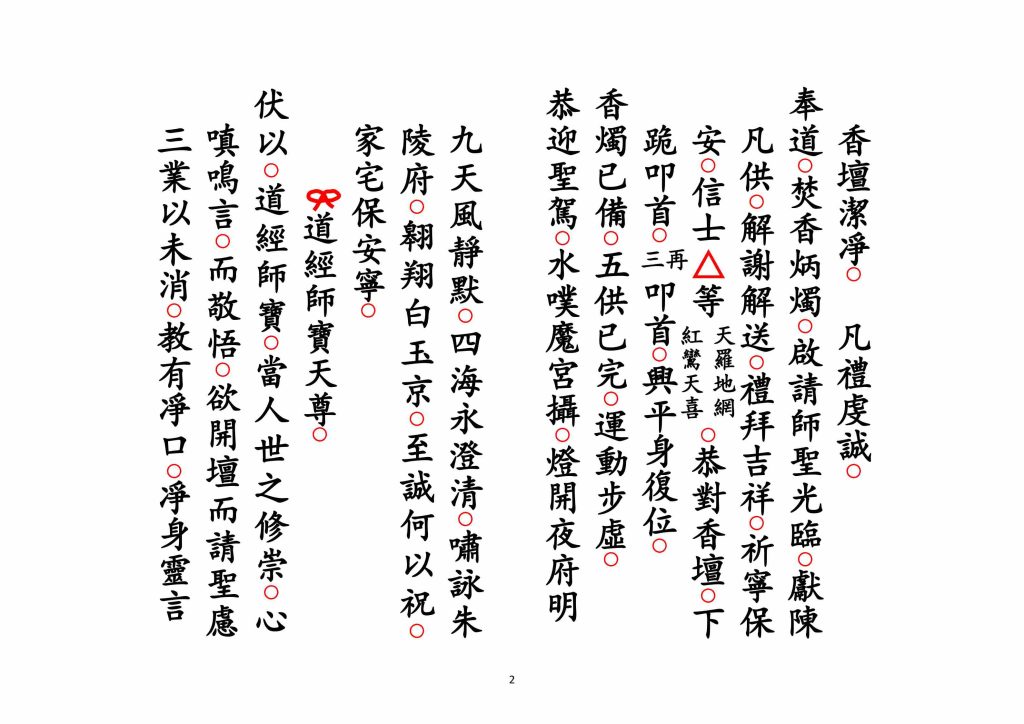 香壇潔凈○　凡禮虔誠○
奉道○焚香炳燭○啟請師聖光臨○獻陳
凡供○解謝解送○禮拜吉祥○祈寧保
安○信士△等天羅地網紅鸞天喜○恭對香壇○下
跪叩首○再三叩首○興平身復位○
香燭已備○五供已完○運動步虛○
恭迎聖駕○水噗魔宮攝○燈開夜府明
九天風靜默○四海永澄清○嘯詠朱
陵府○翱翔白玉京○至誠何以祝○
家宅保安寧○
道經師寶天尊○
伏以○道經師寶○當人世之修崇○心
嗔鳴言○而敬悟○欲開壇而請聖慮
三業以未消○教有凈口○凈身靈言
2